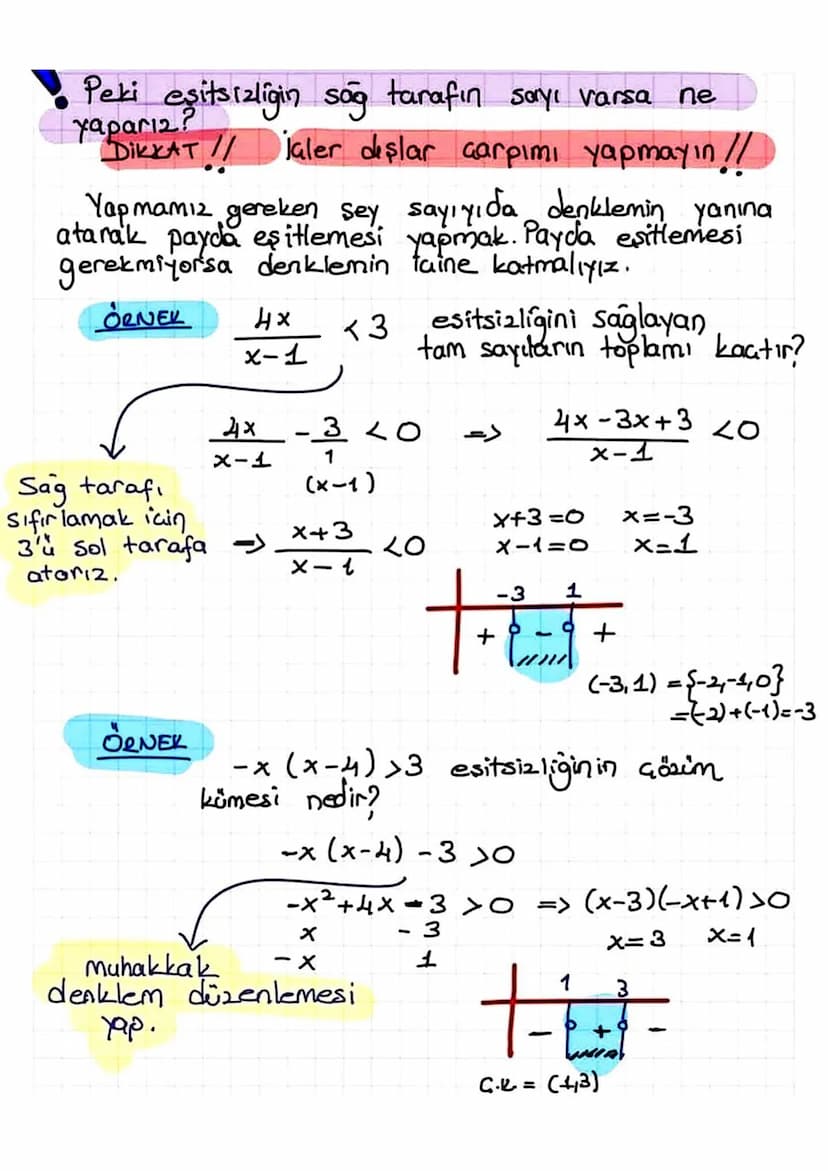 ! Peki eşitsizliğin sağ tarafın sayı varsa ne
yaparız?
DİKKAT !! İçler dışlar çarpımı yapmayın !!
Yapmamız gereken şey sayıyıda denklemin yanına
atarak payda eşitlemesi yapmak. Payda eşitlemesi
gerekmiyorsa denklemin içine katmalıyız.
ÖRNEK 4x/(x-1) < 3 eşitsizliğini sağlayan
tam sayıların toplamı kaçtır?
4x/(x-1) - 3/1 < 0 => (4x-3x+3)/(x-1) < 0
(x-1)
Sağ tarafı
sıfırlamak için
3'ü sol tarafa
atarız.
=> (x+3)/(x-1) < 0
x+3=0 x=-3
x-1=0 x=1
-3 1
+ - +
(-3,1) = {-2,-1,0}
=(-2)+(-1)=-3
ÖRNEK
-x (x-4) >3 eşitsizliğinin çözüm
kümesi nedir?
-x (x-4) - 3 >0
-x²+4x-3 >0 => (x-3)(-x+1) >0
x -3 x=3 x=1
-x 1
Muhakkak
denklem düzenlemesi
yap.
1 3
- + -
Ç.K = (1,3)